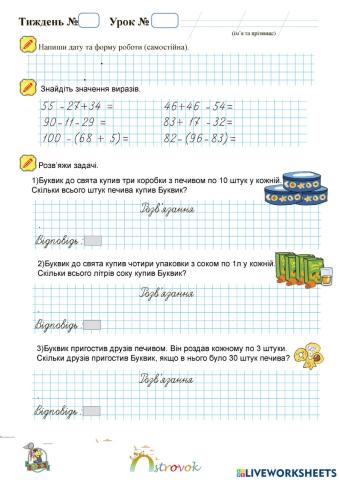 Тиждень № Урок №
(ім'я та прізвище)
Напиши дату та форму роботи (самостійна).
Знайдіть значення виразів.
55 - 27+34 = 46+46 - 54=
90 - 11 - 29 = 83+ 17 - 32=
100 - (68 + 5) = 82- (96 - 83)=
Розв'яжи задачі.
1)Буквик до свята купив три коробки з печивом по 10 штук у кожній.
Скільки всього штук печива купив Буквик?
Розв'язання
Відповідь:
2)Буквик до свята купив чотири упаковки з соком по 1л у кожній.
Скільки всього літрів соку купив Буквик?
Розв'язання
Відповідь:
3)Буквик пригостив друзів печивом. Він роздав кожному по 3 штуки.
Скільки друзів пригостив Буквик, якщо в нього було 30 штук печива?
Розв'язання
Відповідь:
strovok
LIVEWORKSHEETS